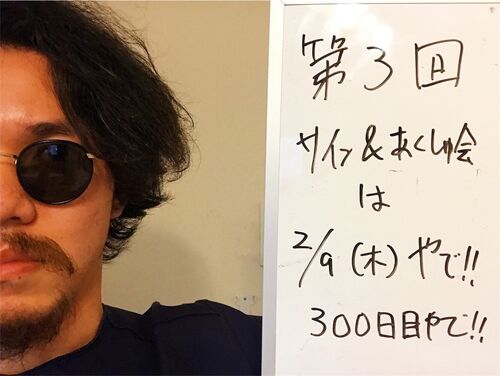 第3回
サイン&あくしゅ会
は
2/9(木)やで!!
300日目やで!!